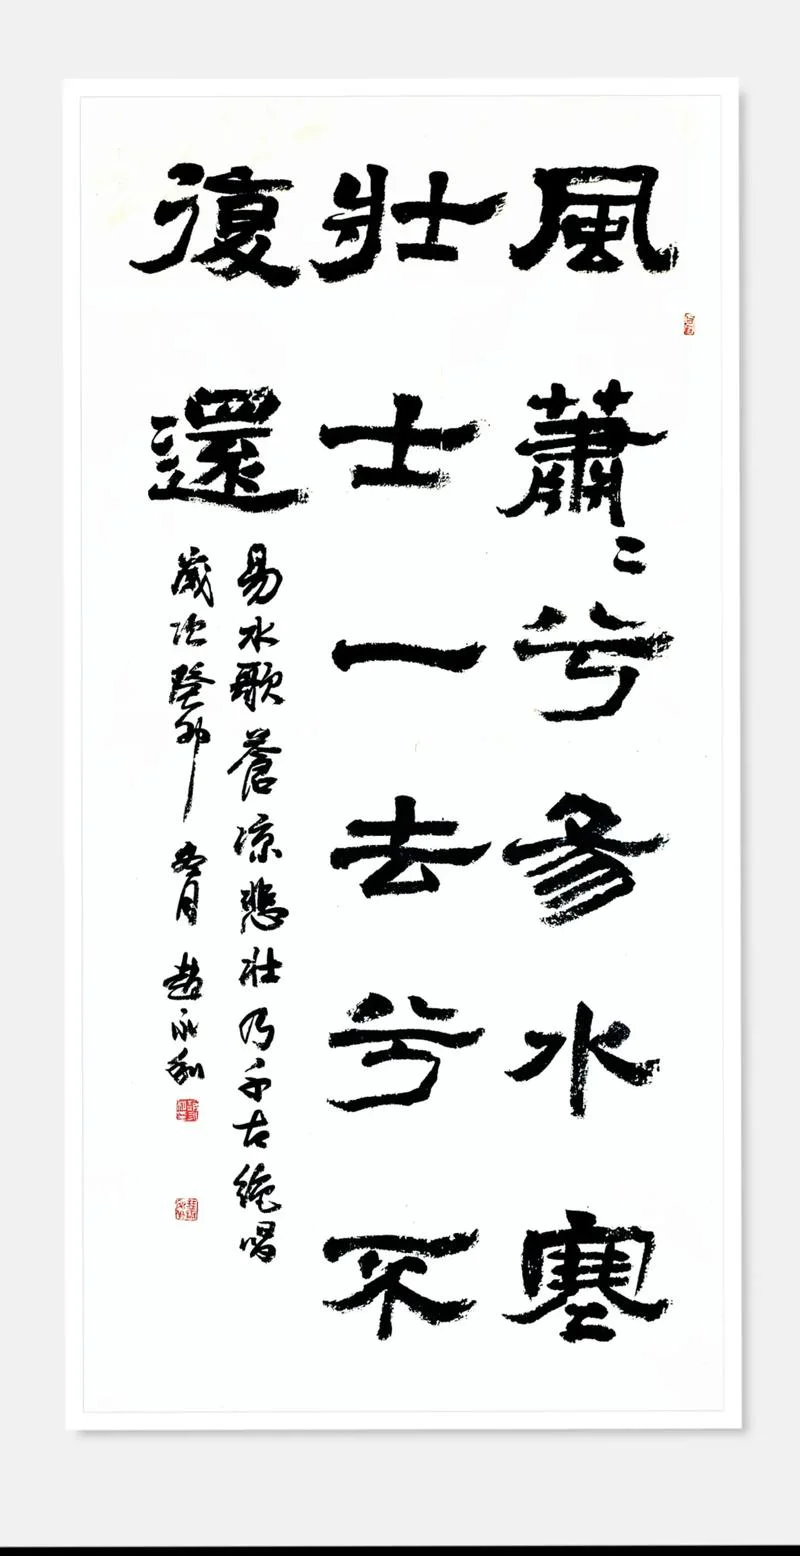 風蕭二兮易水寒
壯士一去兮不
復還
易水歌蒼凉悲壯乃千古絶唱
歲次癸卯冬月趙永